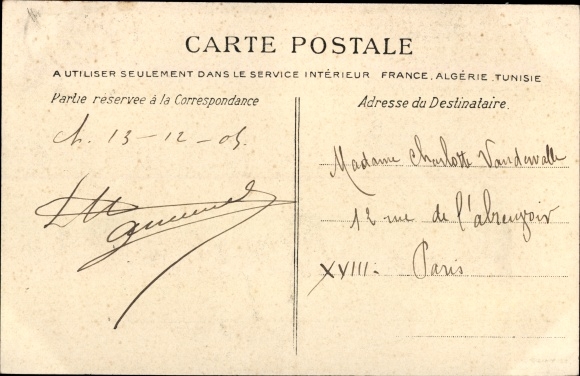 CARTE POSTALE
A UTILISER SEULEMENT DANS LE SERVICE INTÉRIEUR FRANCE, ALGÉRIE, TUNISIE
Partie réservée à la Correspondance
Adresse du Destinataire.
13-12-05
Madame Charlotte Vandewalle
12 rue de l'abreuvoir
XVIII. Paris